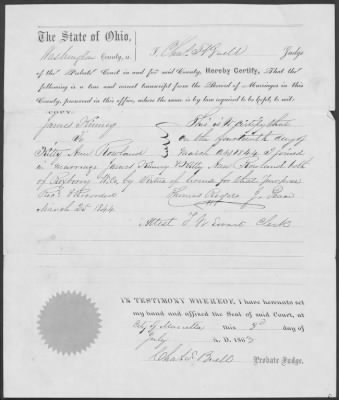 The State of Ohio,
Washington County, ss. I, Chas. F. Buell Judge
of the Probate Court in and for said County, Hereby Certify, That the
following is a true and correct transcript from the Record of Marriages in this
County, preserved in this office, where the same is by law required to be kept, to wit:
COPY.
James Kinney This is to certify that
to on the fourteenth day of
Kitty Ann Rowland March AD 1844 I joined
in Marriage James Kinney & Kitty Ann Rowland both
of Roxbury by virtue of license for that purpose
& Recorded
March 25 1844
Attest T W Ewart Clerk
IN TESTIMONY WHEREOF, I have hereunto set
my hand and affixed the Seal of said Court, at
City of Marietta this 3d day of
July A. D. 1863
Chas. F. Buell Probate Judge.